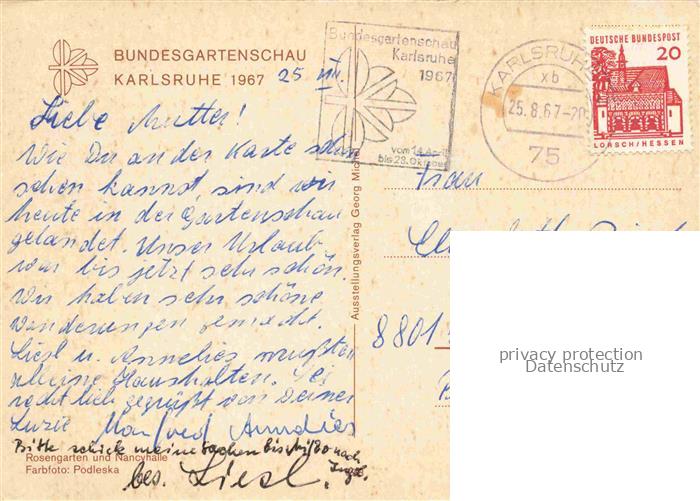 BUNDESGARTENSCHAU
KARLSRUHE 1967
25. VIII.
Liebe Mutter!
Wie Du an der Karte schon
sehen kannst, sind wir
heute in der Gartenschau
gelandet. Unser Urlaub
war bis jetzt sehr schön.
Wir haben sehr schöne
Wanderungen gemacht.
Liesl u. Annelies mußten
kleine Haushalten. Sei
recht lieb gegrüßt von Deiner
Luzie Manfred Annelies
Bitte schick meine Sachen bis nach
bes. Liesl.
Rosengarten und Nancyhalle
Farbfoto: Podleska
Ausstellungsverlag Georg Michel
Bundesgartenschau
Karlsruhe
1967
vom 14. April
bis 23. Oktober
KARLSRUHE
xb
25.8.67-20
75
DEUTSCHE BUNDESPOST
20
LORSCH/HESSEN
Frau
8801
privacy protection
Datenschutz